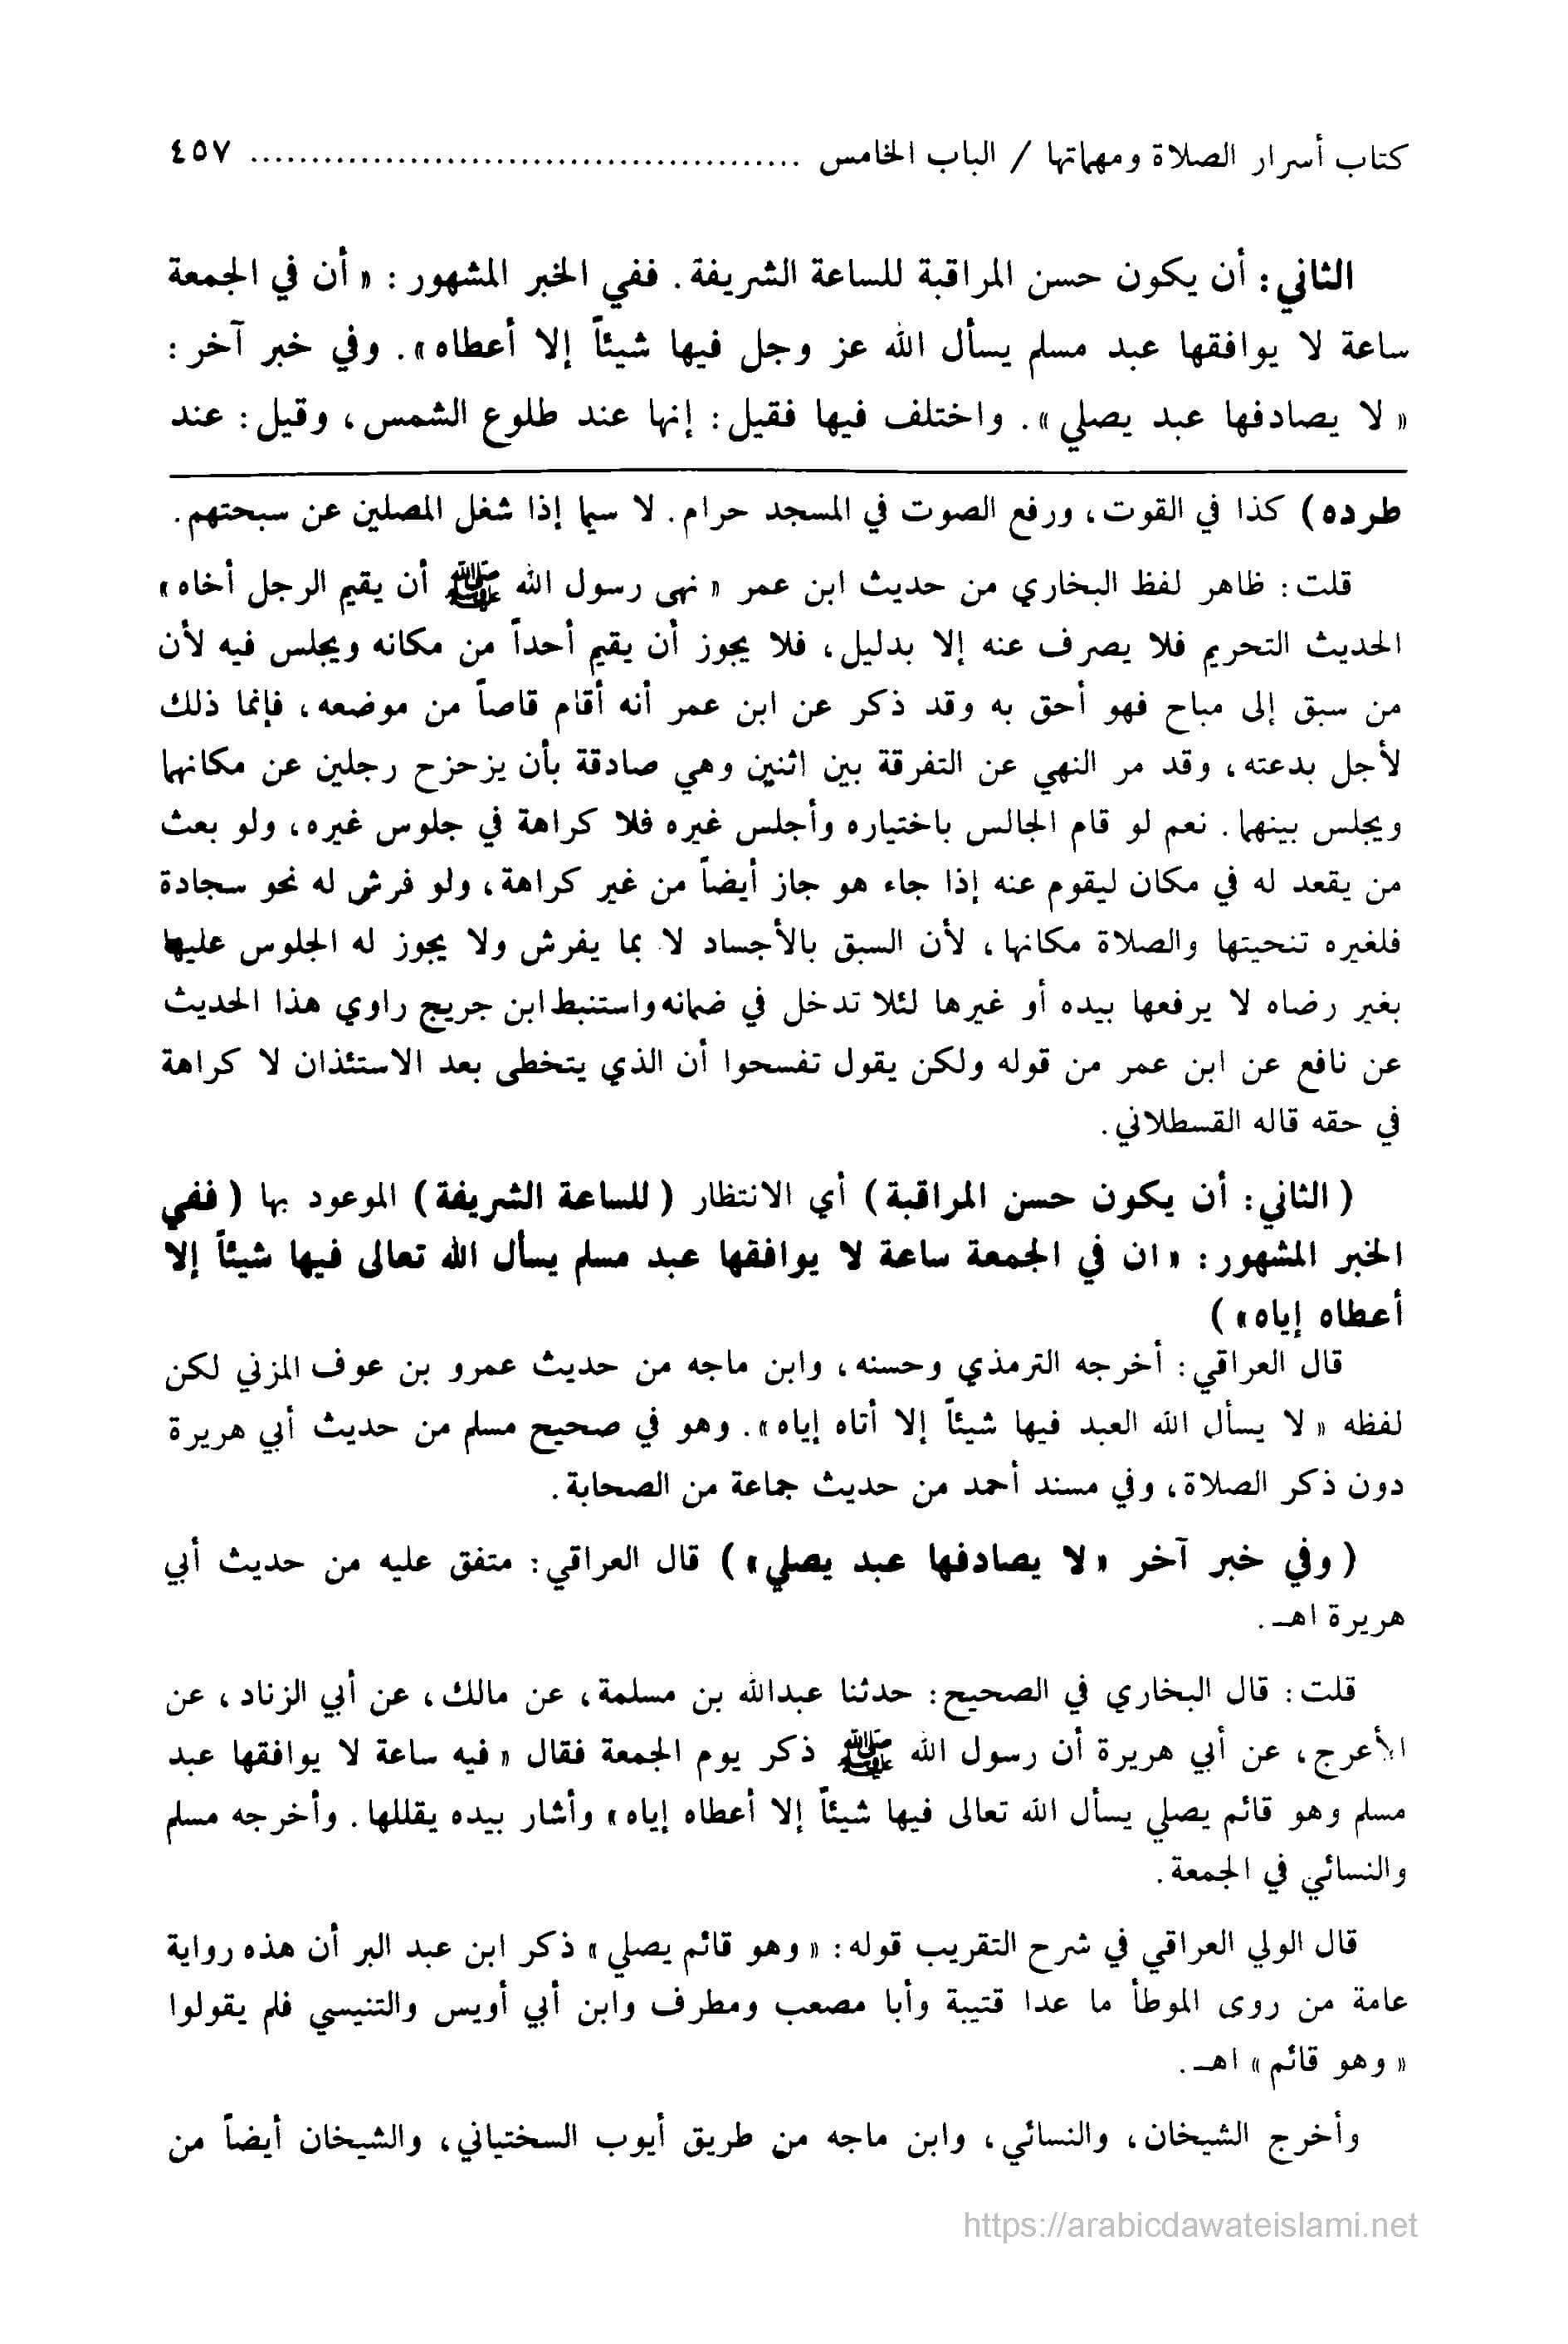 كتاب أسرار الصلاة ومهماتها / الباب الخامس ............................................. ٤٥٧
الثاني: أن يكون حسن المراقبة للساعة الشريفة. ففي الخبر المشهور: « أن في الجمعة
ساعة لا يوافقها عبد مسلم يسأل الله عز وجل فيها شيئاً إلا أعطاه». وفي خبر آخر:
« لا يصادفها عبد يصلي». واختلف فيها فقيل: إنها عند طلوع الشمس، وقيل: عند
طرده) كذا في القوت، ورفع الصوت في المسجد حرام. لا سيما إذا شغل المصلين عن سبحتهم.
قلت: ظاهر لفظ البخاري من حديث ابن عمر « نهى رسول الله ﷺ أن يقيم الرجل أخاه»
الحديث التحريم فلا يصرف عنه إلا بدليل، فلا يجوز أن يقيم أحداً من مكانه ويجلس فيه لأن
من سبق إلى مباح فهو أحق به وقد ذكر عن ابن عمر أنه أقام قاصاً من موضعه، فإنما ذلك
لأجل بدعته، وقد مر النهي عن التفرقة بين اثنين وهي صادقة بأن يزحزح رجلين عن مكانهما
ويجلس بينهما. نعم لو قام الجالس باختياره وأجلس غيره فلا كراهة في جلوس غيره، ولو بعث
من يقعد له في مكان ليقوم عنه إذا جاء هو جاز أيضاً من غير كراهة، ولو فرش له نحو سجادة
فلغيره تنحيتها والصلاة مكانها، لأن السبق بالأجساد لا بما يفرش ولا يجوز له الجلوس عليها
بغير رضاه لا يرفعها بيده أو غيرها لئلا تدخل في ضمانه واستنبط ابن جريج راوي هذا الحديث
عن نافع عن ابن عمر من قوله ولكن يقول تفسحوا أن الذي يتخطى بعد الاستئذان لا كراهة
في حقه قاله القسطلاني.
( الثاني: أن يكون حسن المراقبة) أي الانتظار ( للساعة الشريفة) الموعود بها ( ففي
الخبر المشهور: « ان في الجمعة ساعة لا يوافقها عبد مسلم يسأل الله تعالى فيها شيئاً إلا
أعطاه إياه» )
قال العراقي: أخرجه الترمذي وحسنه، وابن ماجه من حديث عمرو بن عوف المزني لكن
لفظه « لا يسأل الله العبد فيها شيئاً إلا أتاه إياه». وهو في صحيح مسلم من حديث أبي هريرة
دون ذكر الصلاة، وفي مسند أحمد من حديث جماعة من الصحابة.
( وفي خبر آخر « لا يصادفها عبد يصلي» ) قال العراقي: متفق عليه من حديث أبي
هريرة اهـ.
قلت: قال البخاري في الصحيح: حدثنا عبدالله بن مسلمة، عن مالك، عن أبي الزناد، عن
الأعرج، عن أبي هريرة أن رسول الله ﷺ ذكر يوم الجمعة فقال « فيه ساعة لا يوافقها عبد
مسلم وهو قائم يصلي يسأل الله تعالى فيها شيئاً إلا أعطاه إياه» وأشار بيده يقللها. وأخرجه مسلم
والنسائي في الجمعة.
قال الولي العراقي في شرح التقريب قوله: « وهو قائم يصلي» ذكر ابن عبد البر أن هذه رواية
عامة من روى الموطأ ما عدا قتيبة وأبا مصعب ومطرف وابن أبي أويس والتنيسي فلم يقولوا
« وهو قائم» اهـ.
وأخرج الشيخان، والنسائي، وابن ماجه من طريق أيوب السختياني، والشيخان أيضاً من
https://arabicdawateislami.net